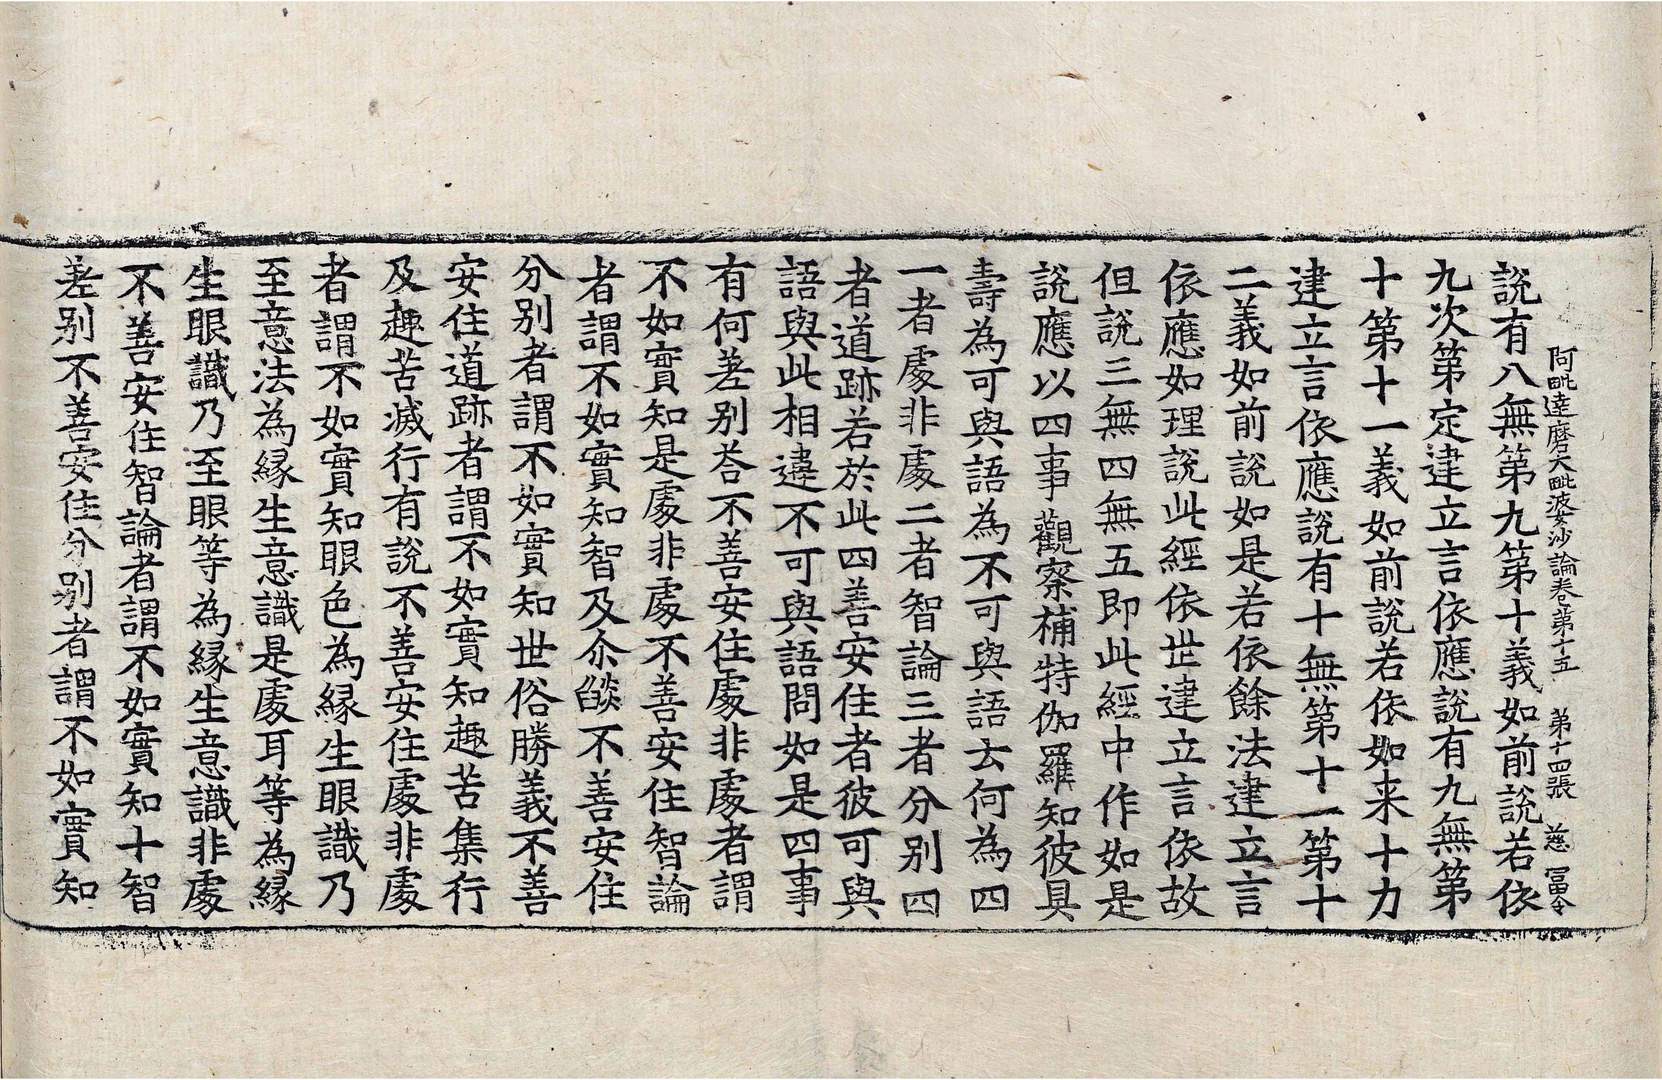 阿毗達磨大毗婆沙論卷第十五 第十四張 慈 冨令
說有八無第九第十義如前說若依
九次第定建立言依應說有九無第
十第十一義如前說若依如来十力
建立言依應說有十無第十一第十
二義如前說如是若依餘法建立言
依應如理說此經依世建立言依故
但說三無四無五即此經中作如是
說應以四事觀察補特伽羅知彼具
壽為可與語為不可與語去何為四
一者處非處二者智論三者分別四
者道跡若於此四善安住者彼可與
語與此相違不可與語問如是四事
有何差別荅不善安住處非處者謂
不如實知是處非處不善安住智論
者謂不如實知智及尒燄不善安住
分別者謂不如實知世俗勝義不善
安住道跡者謂不如實知趣苦集行
及趣苦滅行有說不善安住處非處
者謂不如實知眼色為緣生眼識乃
至意法為緣生意識是處耳等為緣
生眼識乃至眼等為緣生意識非處
不善安住智論者謂不如實知十智
差別不善安住分別者謂不如實知